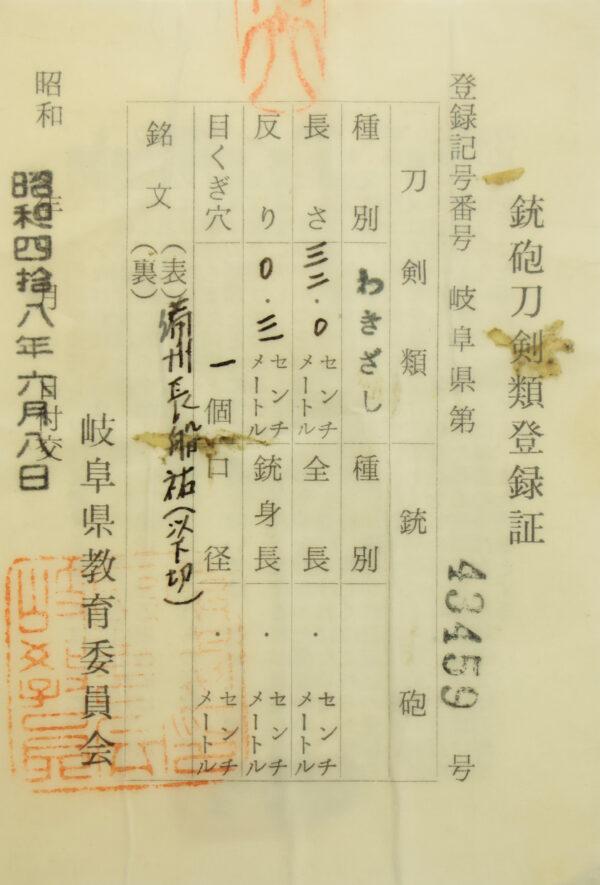 銃砲刀剣類登録証
登録記号番号 岐阜県第 43459 号
刀剣類
銃砲
種別 わきざし
種別
長さ 三二.0 センチメートル
全長 . センチメートル
反り 0.三 センチメートル
銃身長 . センチメートル
目くぎ穴 一個
口径 . センチメートル
銘文
(表) 備州長船祐(以下切)
(裏)
昭和 年 月 日付交
昭和四拾八年六月八日
岐阜県教育委員会